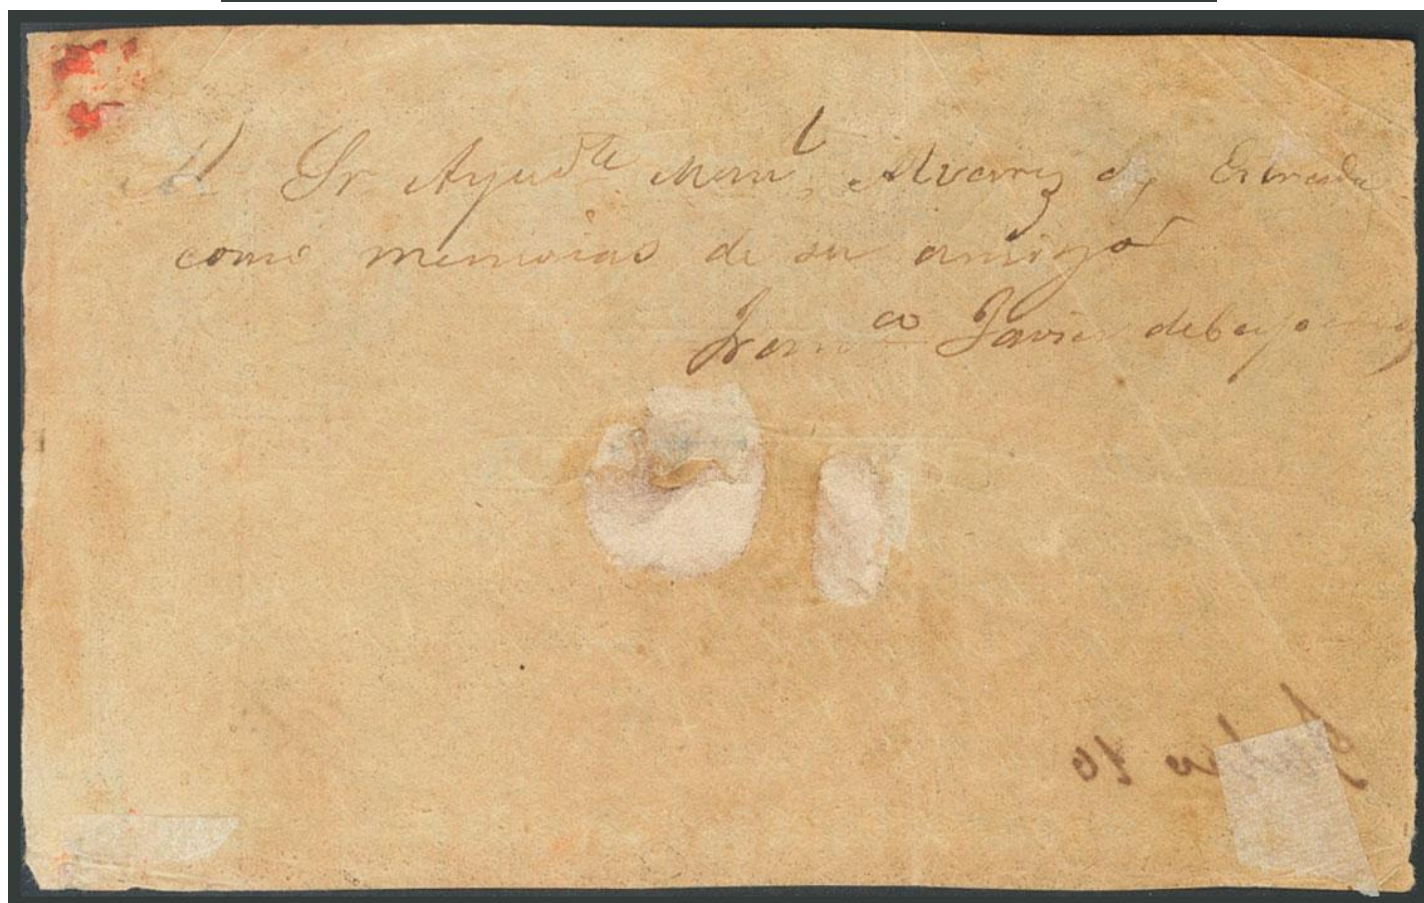 Al Sr Ayudte Manl Alvarez de Estrada
como memorias de su amigo
Franco Javier de